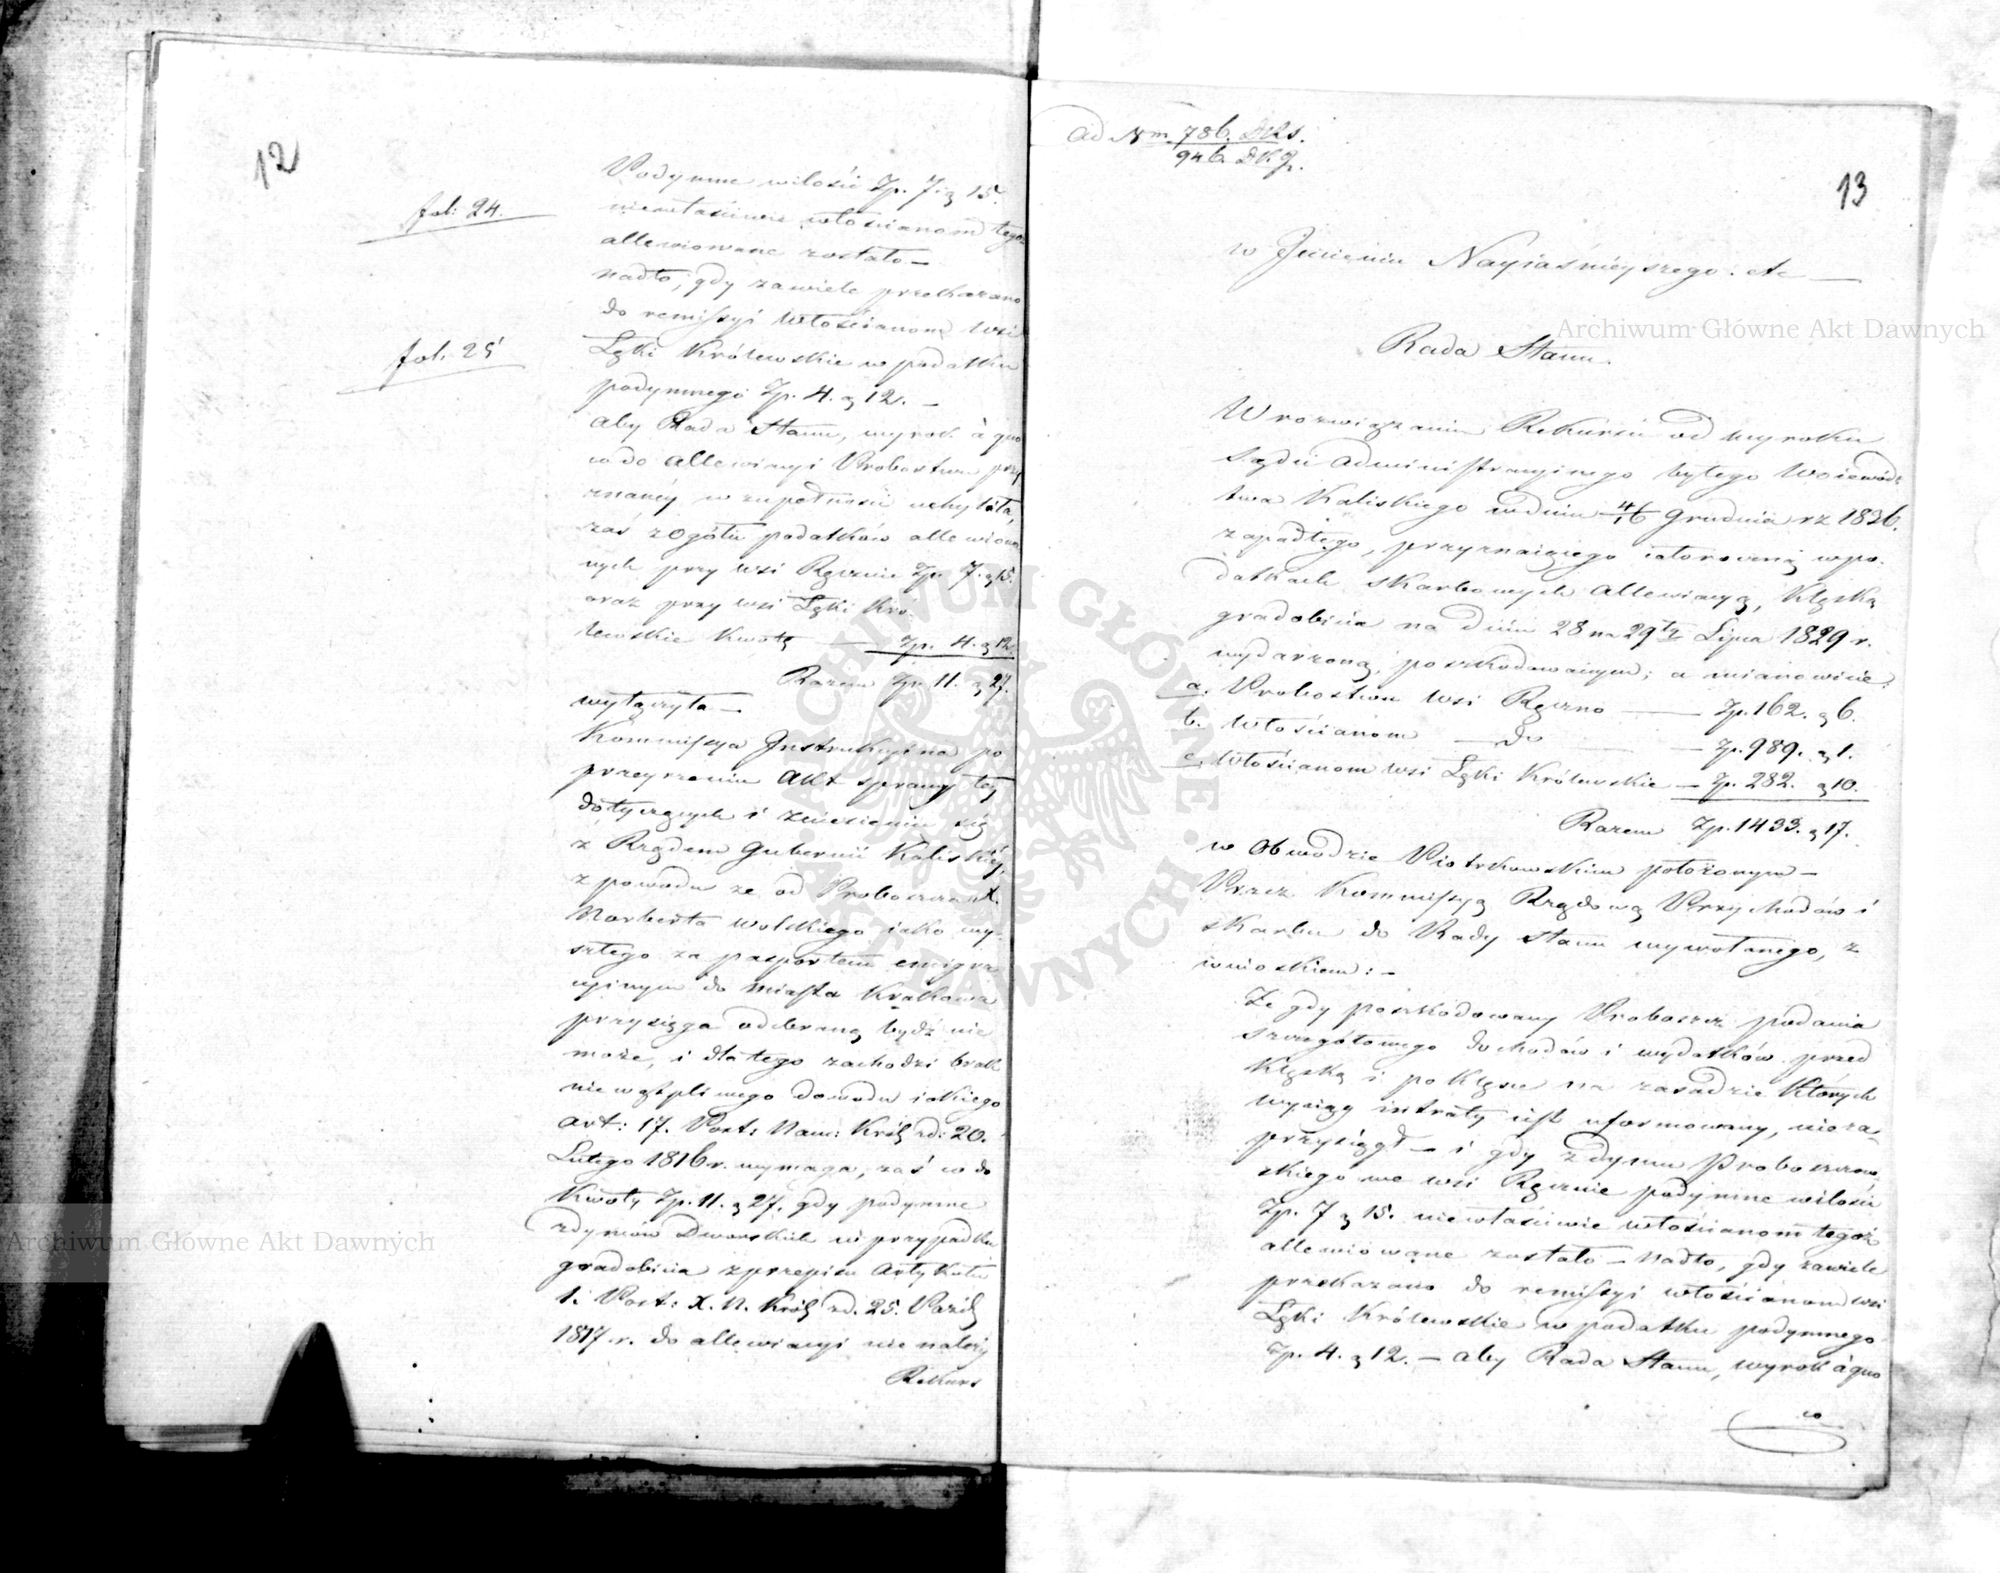 12
fol: 24.
fol: 25
Podymne wilości Zp. 7. g 15.
niewłaściwie włościanom tegoż
allewiowane zostało –
nadto, gdy zawiele przekazano
do remissyi Włościanom wsi
Łęki Królewskie w podatku
podymnego Zp. 4. g 12. –
aby Rada Stanu, wyrok à quo
co do allewiacyi Probostwu przy
znanéy w zupełności uchyliła,
zaś z ogółu podatków allewiowa
nych przy wsi Ręcznie Zp. 7. g 15.
oraz przy wsi Łęki Kró
lewskie kwotę — Zp. 4. g 12.
Razem Zp. 11. g 27.
wyłączyła –
Kommissya Instrukcyina po
przeyrzeniu Akt sprawy tey
dotyczących i zniesieniu się
z Rządem Gubernii Kaliskiéy,
z powodu że od Proboszcza X.
Norberta Wolskiego iako wy
szłego za pasportem emigra
cyinym do miasta Krakowa
przysięga odebraną bydź nie
może, i dla tego zachodzi brak
niewątpliwego dowodu iakiego
art: 17. Post: Nam: Król. zd: 20.
Lutego 1816 r. wymaga, zaś co do
kwoty Zp. 11. g 27. gdy podymne
zdymów Dworskich w przypadku
gradobicia z przepisu Artykułu
1. Post: X. N. Król. zd. 25. Paźdz
1817. r. do allewiacyi nie należy
Rekurs
ad Nrm 786. DRS.
946. DKG.
13
w Imieniu Nayiaśnieyszego. etc —
Rada Stanu.
W rozwiązaniu Rekursu od wyroku
Sądu Administracyinego byłego Wojewódz
twa Kaliskiego w dniu 4/16 Grudnia rz 1836.
zapadłego, przyznaiącego całoroczną w po-
datkach skarbowych allewiacyą, klęską
gradobicia na dniu 28 na 29ty Lipca 1829 r.
wydarzoną, poszkodowanym; a mianowicie:
a. Probostwu wsi Ręczno — Zp. 162. g 6.
b. Włościanom — do — Zp. 989. g 1.
c. Włościanom wsi Łęki Królewskie — Zp. 282. g 10.
Razem Zp. 1433. g 17.
w Obwodzie Piotrkowskim położonym –
Przez Kommissyą Rządową Przychodów i
Skarbu do Rady Stanu wywołanego, z
wnioskiem: –
Że gdy poszkodowany Proboszcz podania
szczegółowego dochodów i wydatków przed
klęską i po klęsce na zasadzie których
wyciąg intraty iest uformowany, nieza-
przysiągł – i gdy z dymu Proboszczow
skiego we wsi Ręcznie podymne wilości
Zp. 7 g 15. niewłaściwie włościanom tegoż
allewiowane zostało – nadto, gdy zawiele
przekazano do remissyi włościanom wsi
Łęki Królewskie w podatku podymnego
Zp. 4. g 12. – aby Rada Stanu, wyrok à quo
co
Archiwum Główne Akt Dawnych
Archiwum Główne Akt Dawnych
ARCHIWUM GŁÓWNE AKT DAWNYCH